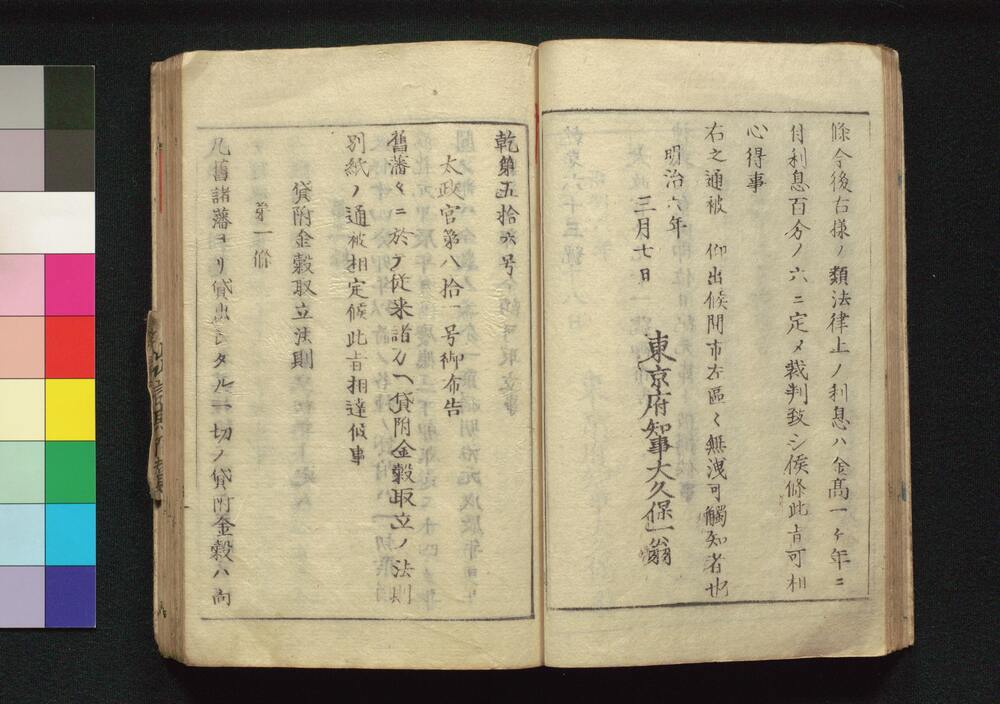 條今後右様ノ類法律上ノ利息ハ金高一ヶ年ニ
付利息百分ノ六ニ定メ裁判致シ候條此旨可相
心得事
右之通被 仰出候間市在區々無洩可觸知者也
明治六年
三月七日
東京府知事大久保一翁
乾第五拾六号
太政官第八拾一号御布告
舊藩々ニ於テ従来諸方ヘ貸附金穀取立ノ法則
別紙ノ通被相定候此旨相達候事
貸附金穀取立法則
第一條
凡舊諸藩ヨリ貸出シタル一切ノ貸附金穀ハ向